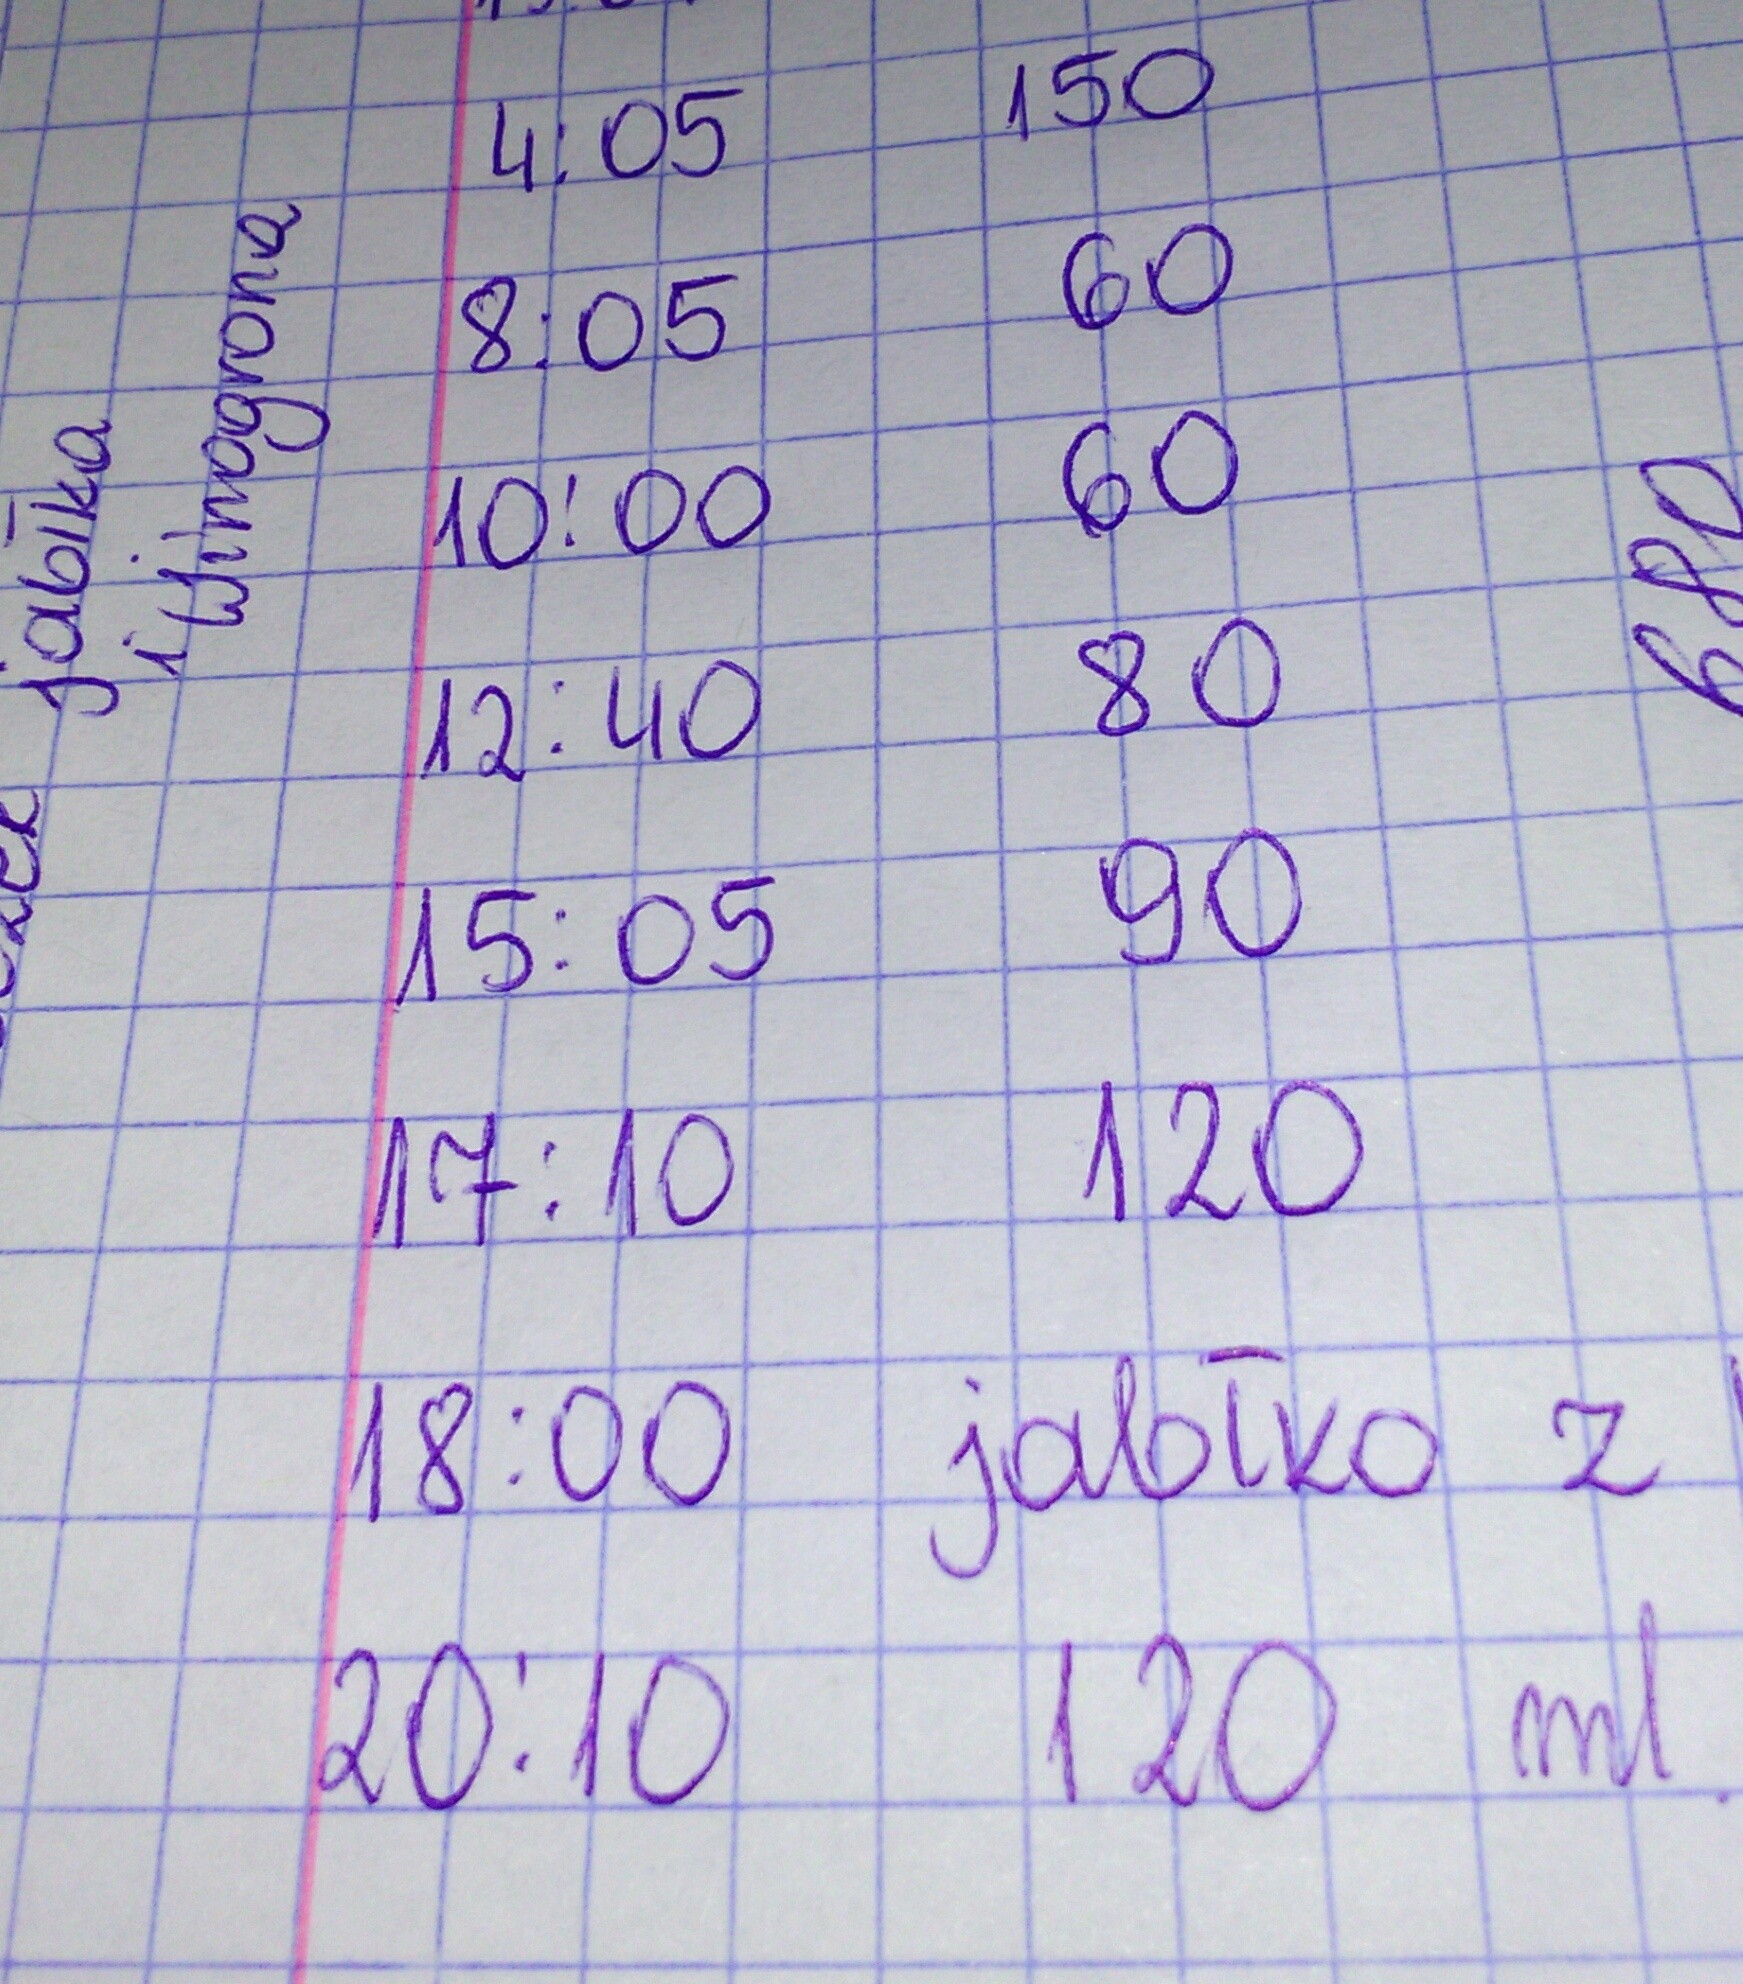 4:05 150
8:05 60
10:00 60
12:40 80
15:05 90
17:10 120
18:00 jabłko z
20:10 120 ml
jabłka
i winogrona
680